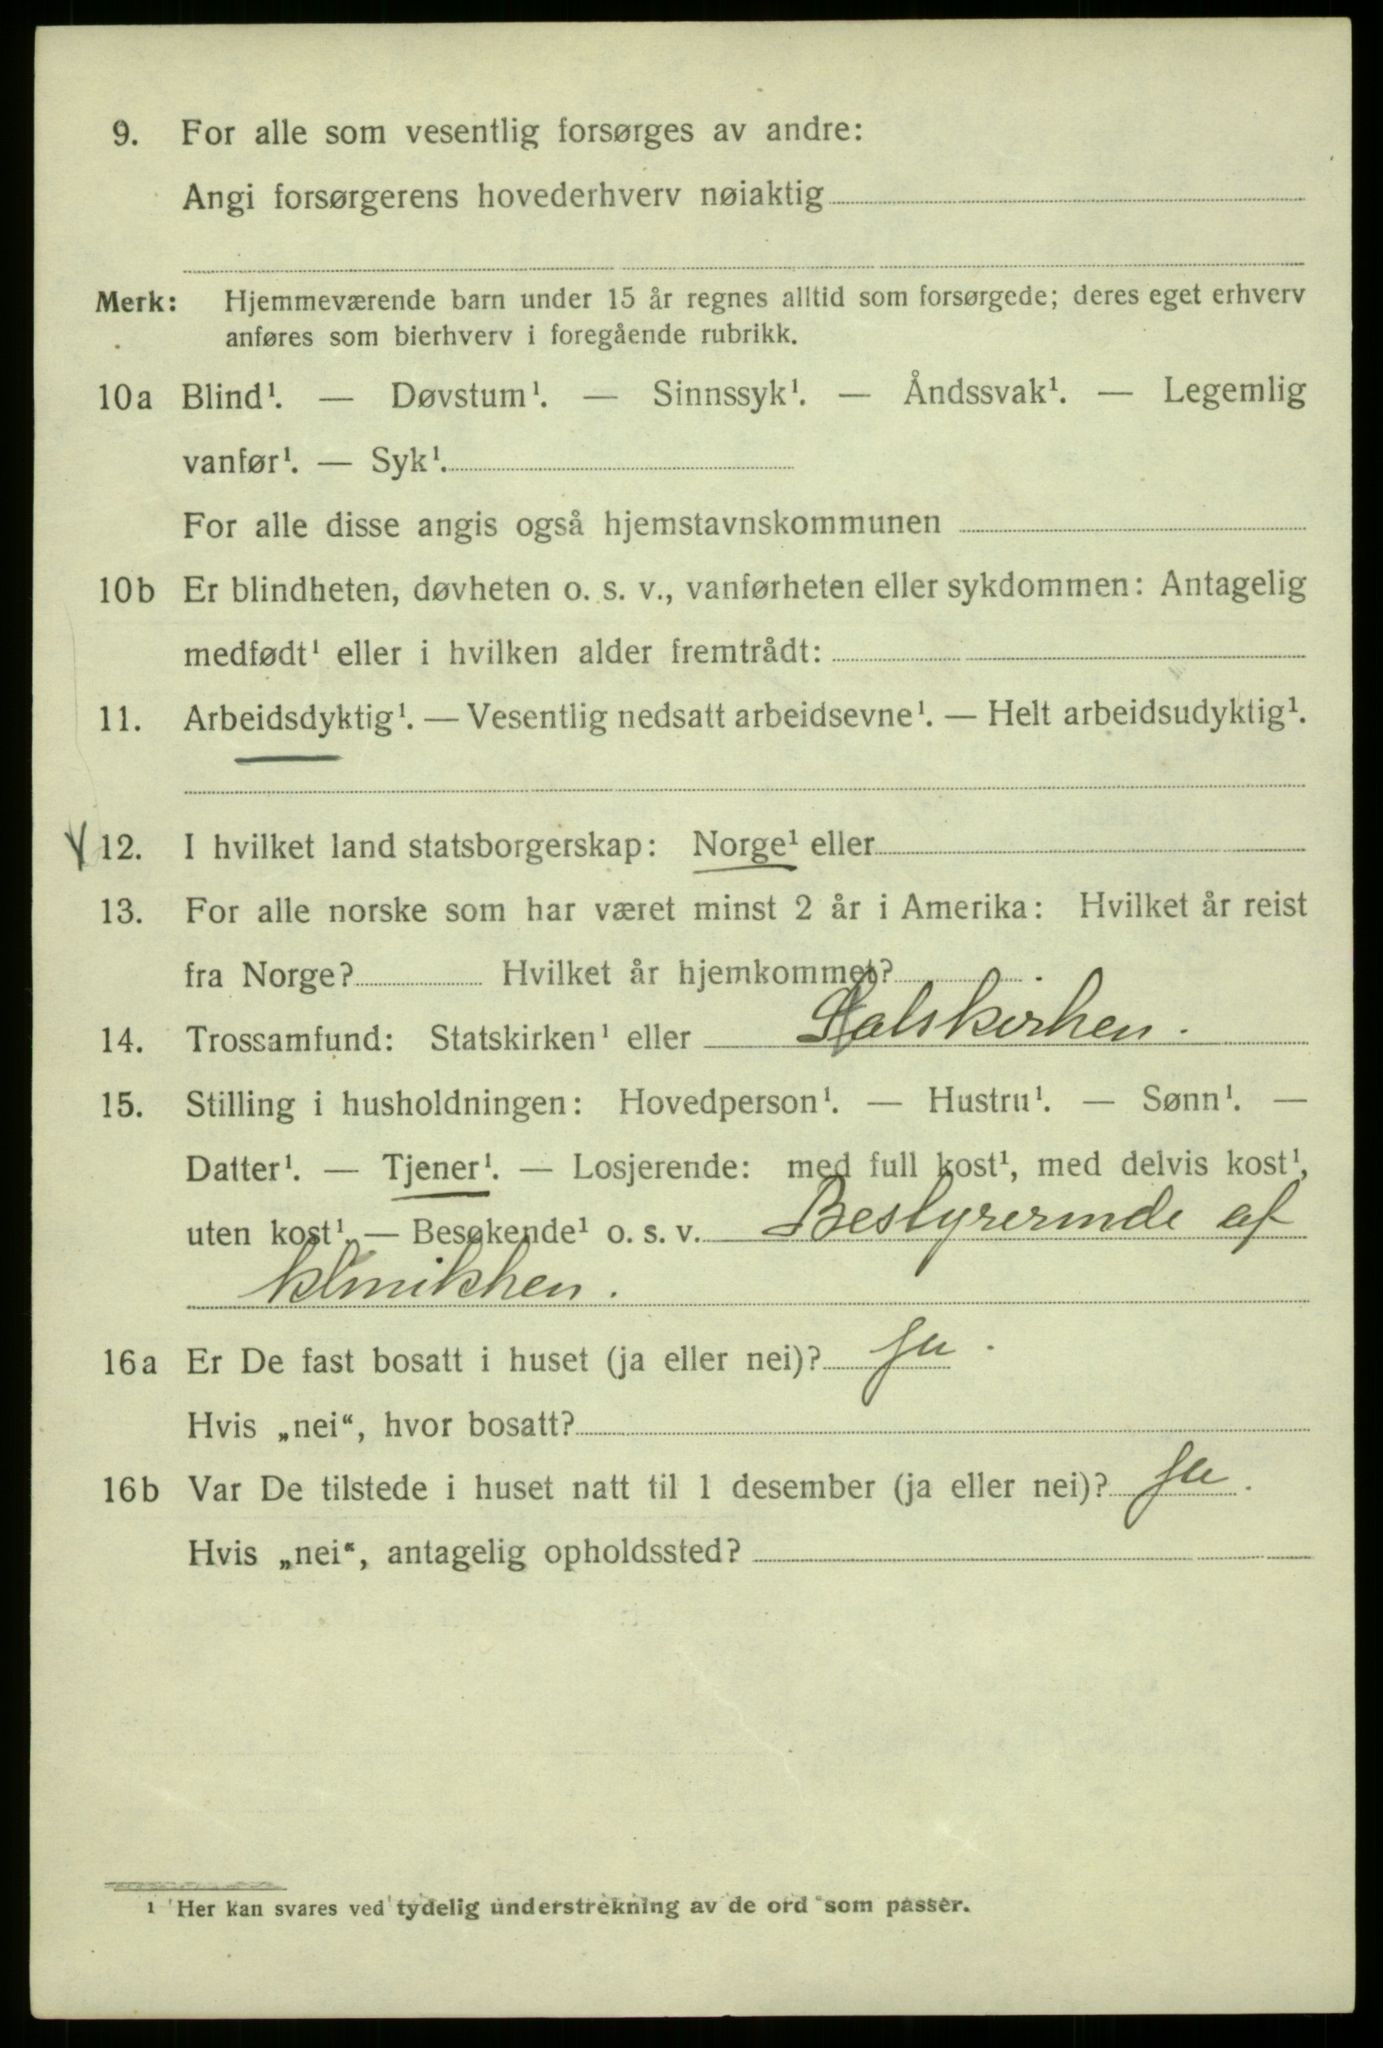 9. For alle som vesentlig forsørges av andre:
Angi forsørgerens hovederhverv nøiaktig
Merk: Hjemmeværende barn under 15 år regnes alltid som forsørgede; deres eget erhverv
anføres som bierhverv i foregående rubrikk.
10a Blind¹. — Døvstum¹. — Sinnssyk¹. — Åndssvak¹. — Legemlig
vanfør¹. — Syk¹.
For alle disse angis også hjemstavnskommunen
10b Er blindheten, døvheten o. s. v., vanførheten eller sykdommen: Antagelig
medfødt¹ eller i hvilken alder fremtrådt:
11. Arbeidsdyktig¹. — Vesentlig nedsatt arbeidsevne¹. — Helt arbeidsudyktig¹.
12. I hvilket land statsborgerskap: Norge¹ eller
13. For alle norske som har været minst 2 år i Amerika: Hvilket år reist
fra Norge? Hvilket år hjemkommet?
14. Trossamfund: Statskirken¹ eller Statskirken.
15. Stilling i husholdningen: Hovedperson¹. — Hustru¹. — Sønn¹. —
Datter¹. — Tjener¹. — Losjerende: med full kost¹, med delvis kost¹,
uten kost¹. — Besøkende¹ o. s. v. Bestyrerinde af
klinikken.
16a Er De fast bosatt i huset (ja eller nei)? Ja.
Hvis „nei“, hvor bosatt?
16b Var De tilstede i huset natt til 1 desember (ja eller nei)? Ja.
Hvis „nei“, antagelig opholdssted?
¹ Her kan svares ved tydelig understrekning av de ord som passer.